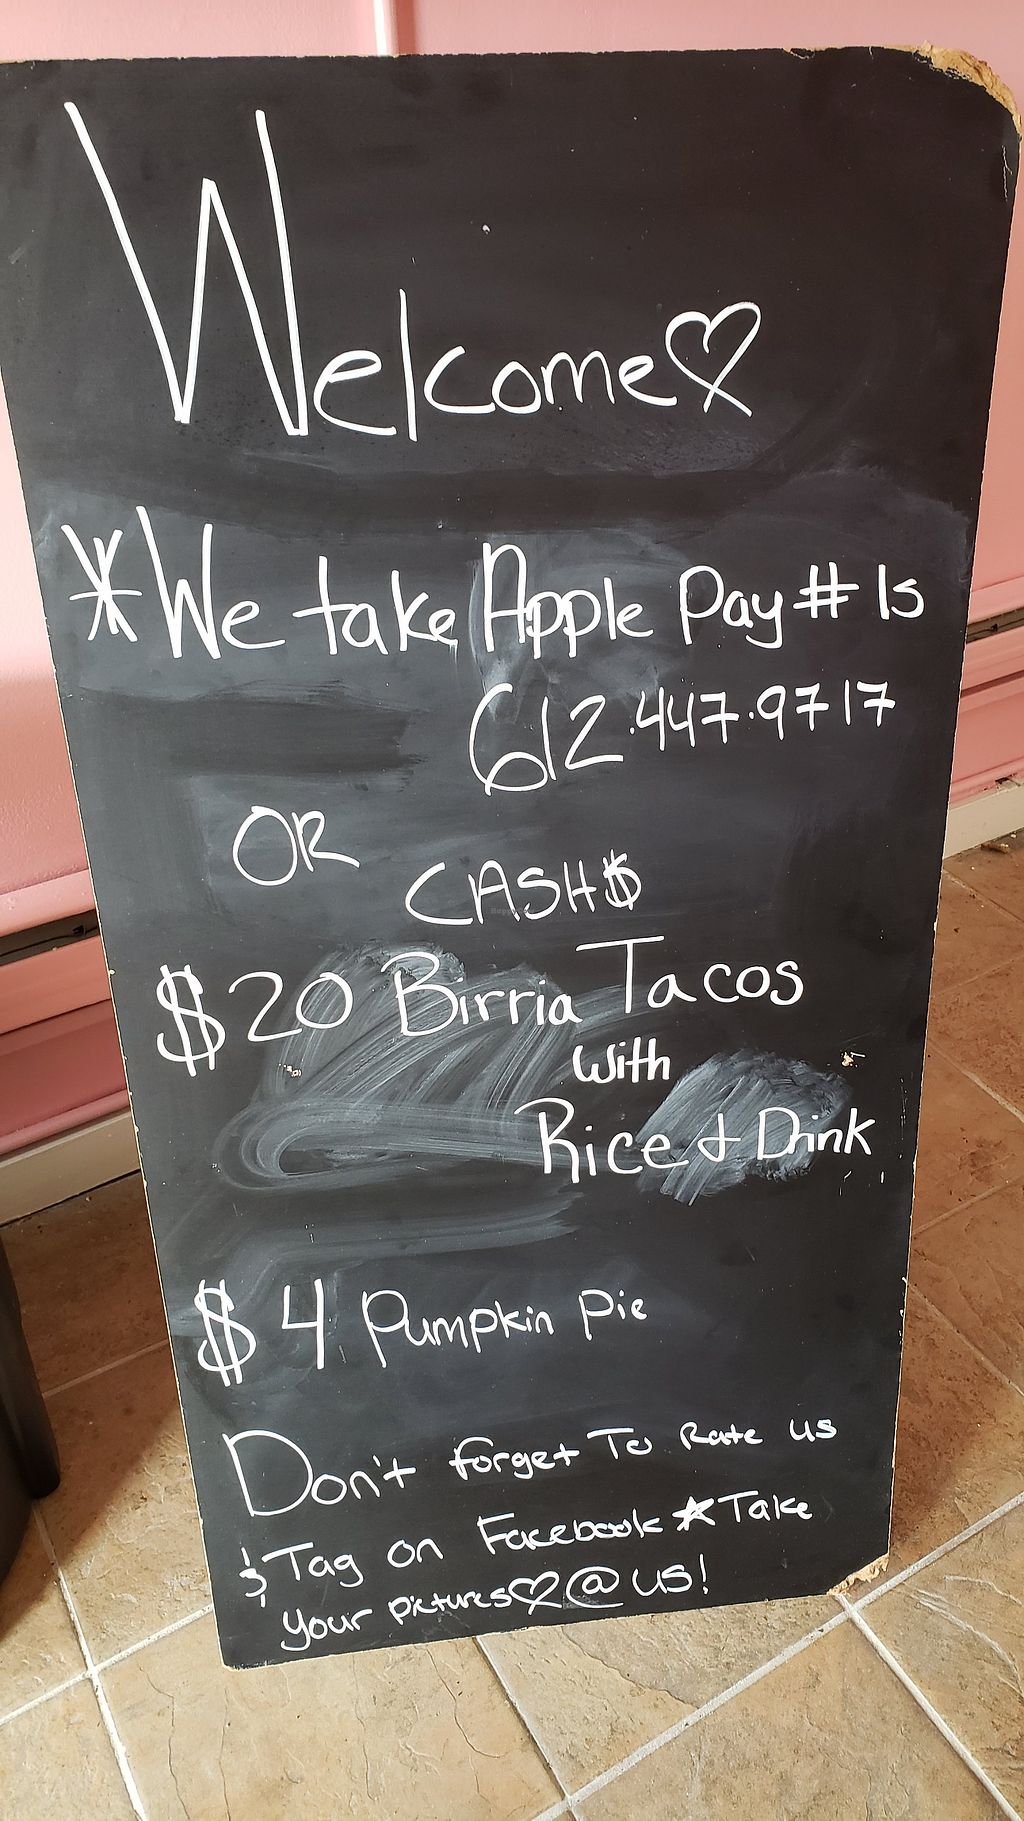 Welcome♡
*We take Apple Pay # Is
612.447.9717
OR
CASH$
$20 Birria Tacos
with
Rice & Drink
$4 Pumpkin Pie
Don't forget To Rate us
& Tag on Facebook ☆ Take
your pictures ♡ @ us!